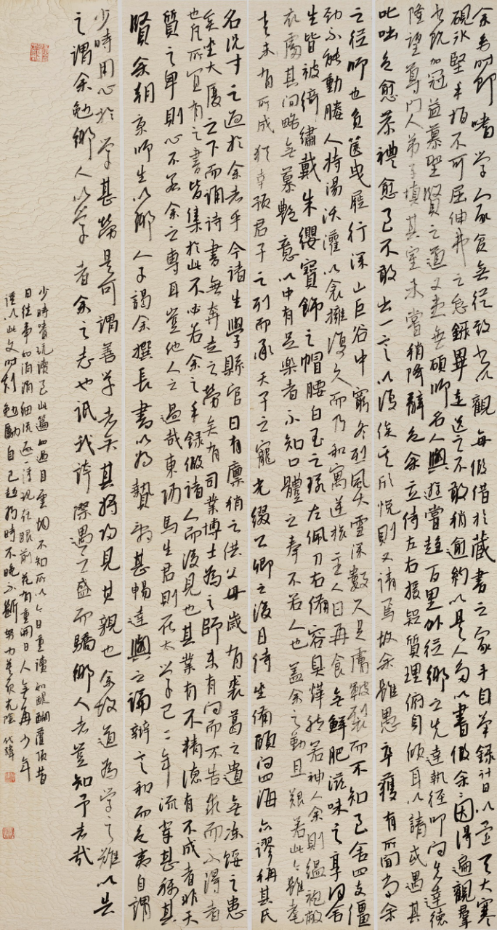 余幼時即嗜学家貧無從致書以觀每假借於藏書之家手自筆録計日以還天大寒
硯冰堅手指不可屈伸弗之怠録畢走送之不敢稍逾約以是人多以書假余余因得遍觀羣
書既加冠益慕聖賢之道又患無碩師名人與遊嘗趨百里外從鄉之先達執經叩问先達德
隆望尊门人弟子填其室未嘗稍降辭色余立侍左右援疑質理俯身傾耳以請或遇其
叱咄色愈恭禮愈至不敢出一言以復俟其欣悦則又請焉故余雖愚卒獲有所闻當余
之從師也負篋曳屣行深山巨谷中窮冬烈風大雪深數尺足膚皸裂而不知至舍四支僵
劲不能動媵人持湯沃灌以衾擁覆久而乃和寓逆旅主人日再食無鲜肥滋味之享同舍
生皆被綺繡戴朱纓寶飾之帽腰白玉之環左佩刀右備容臭燁然若神人余則緼袍敝
衣處其间略無慕艷意以中有足樂者不知口體之奉不若人也盖余之勤且艱若此今雖耄
老未有所成猶幸預君子之列而承天子之寵光綴公卿之後日侍坐備顧问四海亦謬稱其氏
名况才之過於余者乎今諸生學縣官日有廩稍之供父母歲有裘葛之遺無凍餒之患
矣坐大厦之下而誦詩書無奔走之勞矣有司業博士為之師未有问而不告求而不得者
也凡所宜有之書皆集於此不必若余之手録假諸人而後見也其業有不精德有不成者非天
質之卑則心不若余之專耳豈他人之過哉東陽馬生君則在太学已二年流輩甚稱其
賢余朝京師生以鄉人子謁余撰長書以為贄辭甚暢達與之論辨言和而色夷自謂
少時用心於学甚勞是可謂善学者矣其將歸見其親也余故道為学之難以告
之謂余勉鄉人以学者余之志也詆我誇際遇之盛而驕鄉人者豈知予者哉